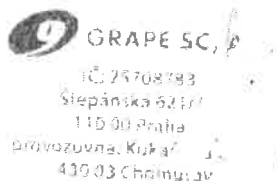 GRAPE SC,
IČ: 25708783
Štěpánská 621/
110 00 Praha
provozovna:
430 03 Chomutov